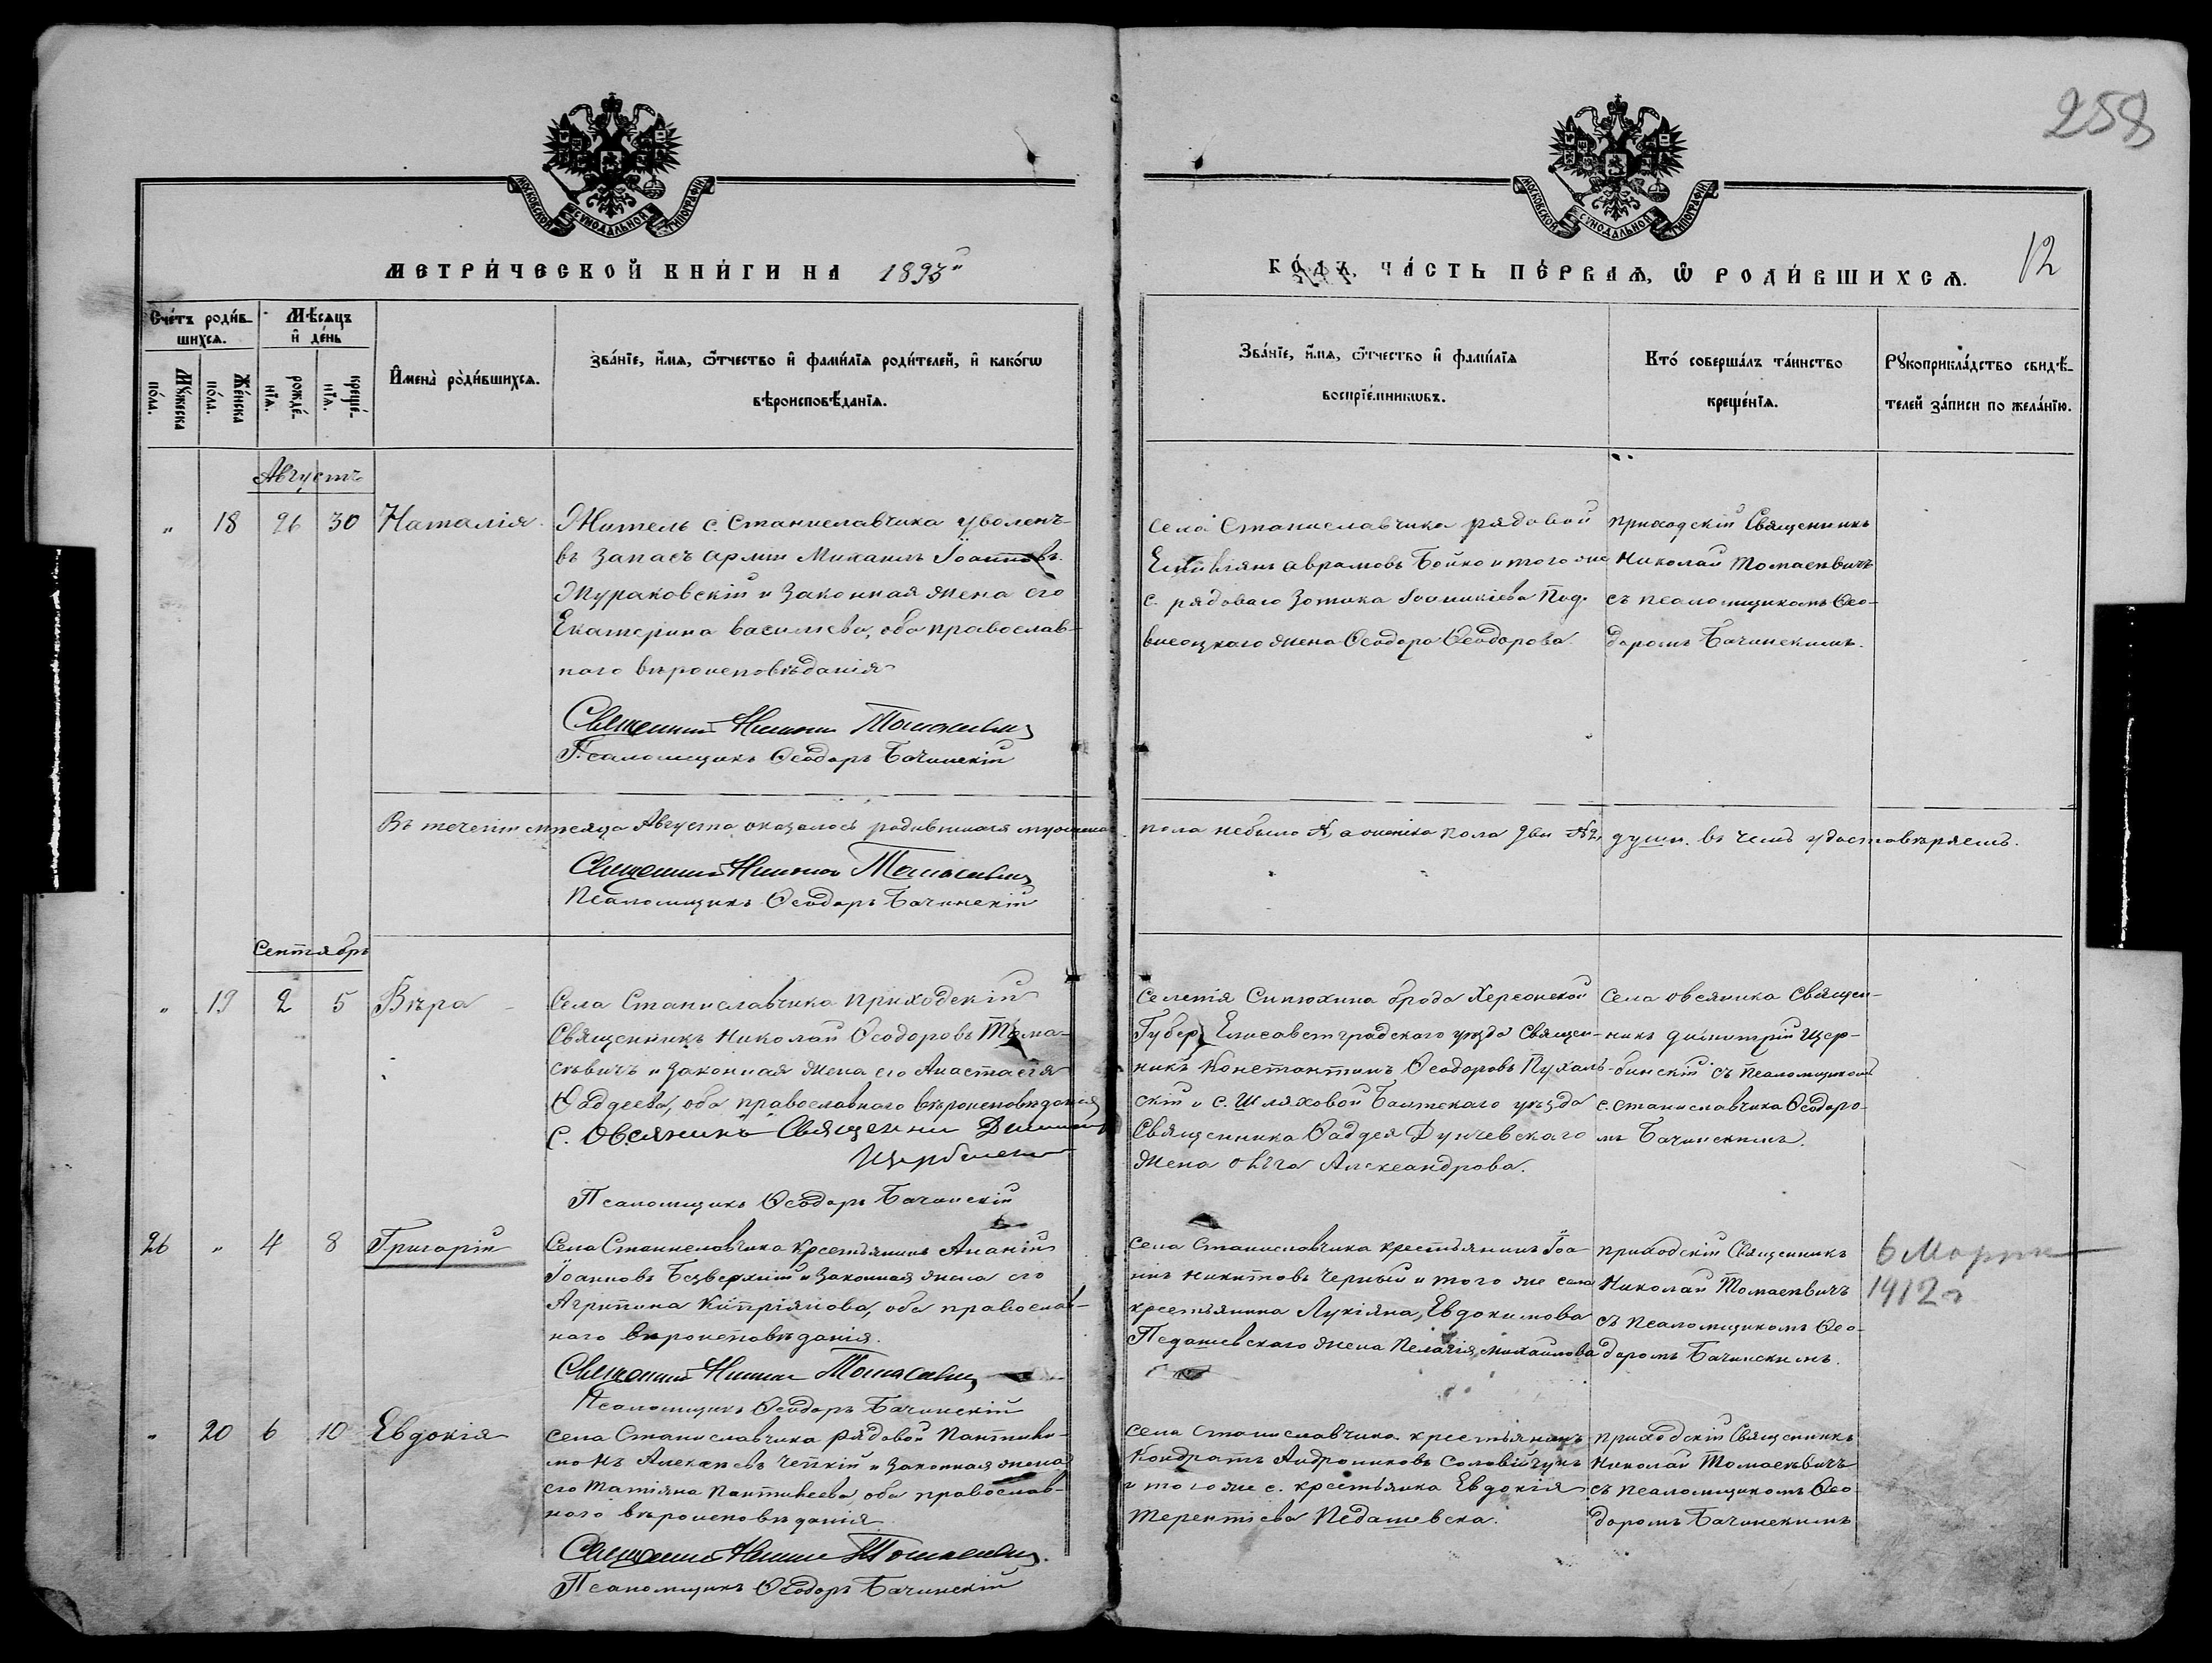 258
МОСКОВСКОЙ СѴНОДАЛЬНОЙ ТИПОГРАФІИ
МОСКОВСКОЙ СѴНОДАЛЬНОЙ ТИПОГРАФІИ
МЕТРИ́ЧЕСКОЙ КНИ́ГИ НА 1893"
ГО́ДЪ, ЧА́СТЬ ПЕ́РВАѦ, Ѽ РОДИ́ВШИХСѦ.
12
Сче́тъ роди́в-
шихсѧ.
Мѣ́сѧцъ
и҆ де́нь
Мꙋ́жеска
по́ла.
Же́нска
по́ла.
рожде́-
нїѧ.
креще́-
нїѧ.
И҆мена̀ роди́вшихсѧ.
Зва́нїе, и҆́мѧ, ѻ҆́тчество и҆ фами́лїѧ роди́телей, и҆ како́гѡ
вѣроисповѣ́данїѧ.
Зва́нїе, и҆́мѧ, ѻ҆́тчество и҆ фами́лїѧ
воспрїе́мникѡвъ.
Кто́ соверша́лъ та́инство
креще́нїѧ.
Рꙋкоприкла́дство свидѣ́-
телей за́писи по жела́нїю.
Августъ
" 18 26 30 Наталія
Житель с. Станиславчика уволенъ
въ запасъ арміи Михаилъ Іоанновъ
Жураковскій и законная жена его
Екатерина Васильева, оба православ-
наго вѣроисповѣданія
Священникъ Николай Томасевичъ
Псаломщикъ Ѳеодоръ Бачинскій
Села Станиславчика рядовой
авраамовъ Бойко и того же
с. рядоваго Зотика Іоаникіева Под-
высоцкаго жена Ѳеодора Ѳеодорова.
Приходскій Священникъ
Николай Томасевичъ
съ псаломщикомъ Ѳео-
доромъ Бачинскимъ.
Въ теченіи мѣсяца Августа оказалось родившихся мужеска пола небыло, а женска пола двѣ №2, души. въ чемъ удостовѣряемъ.
Священникъ Николай Томасевичъ
Псаломщикъ Ѳеодоръ Бачинскій
Сентябрь
" 19 2 5 Вѣра
Села Станиславчика приходскій
Священникъ Николай Ѳеодоровъ Тома-
севичъ и законная жена его Анастасія
Ѳаддеева, оба православнаго вѣроисповѣданія
С. Овсяникъ Священни Димитр
Щербинск
Псаломщикъ Ѳеодоръ Бачинскій
Селенія Синюхина брода Херсонской
Губер. Елисаветградскаго уѣзда Священ-
никъ Константинъ Ѳеодоровъ Пухаль-
скій и с. Шляховой Балтскаго уѣзда
Священника Ѳаддея Дунчевскаго
жена Ольга Александрова.
Села Овсяника Священ-
никъ Димитрій Щер-
бинскій съ псаломщикомъ
с. Станиславчика Ѳеодоро-
мъ Бачинскимъ.
26 " 4 8 Григорій
Села Станиславчика крестьянинъ Ананій
Іоанновъ Безверхній и законная жена его
Агрипина Кипріянова, оба православ-
наго вѣроисповѣданія.
Священникъ Николай Томасевичъ
Псаломщикъ Ѳеодоръ Бачинскій
Села Станиславчика крестьянинъ Іоа-
ннъ Никитовъ Черный и того же села
крестьянина Лукіяна Евдокимова
Педашевскаго жена Пелагія Михаилова
Приходскій Священникъ
Николай Томасевичъ
съ псаломщикомъ Ѳео-
доромъ Бачинскимъ.
6 Марта
1912 г
" 20 6 10 Евдокія
Села Станиславчика рядовой Пантели-
монъ Алексѣевъ и законная жена
его Татіяна Пантелеева оба православ-
наго вѣроисповѣданія
Священникъ Николай Томасевичъ
Псаломщикъ Ѳеодоръ Бачинскій
Села Станиславчика крестьянинъ
Кондратъ Андрониковъ Соловійчукъ
и того же с. крестьянка Евдокія
Терентіева Педашевска.
Приходскій Священникъ
Николай Томасевичъ
съ псаломщикомъ Ѳео-
доромъ Бачинскимъ